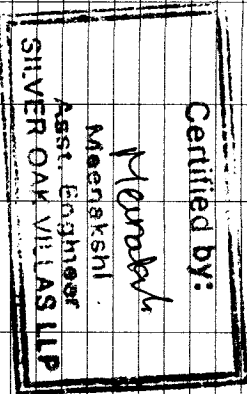 Certified by:
Meenakshi
Meenakshi
Asst. Engineer
SILVER OAK VILLAS LLP